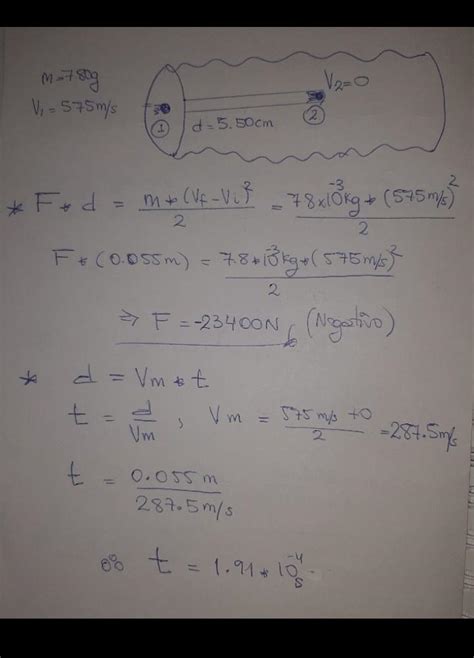 m=780g
V₁ = 575m/s
①
d = 5.50cm
V₂=0
②
* F * d = m*(Vf-Vi)²/2 = 7.8×10⁻³kg*(575m/s)²/2
F*(0.055m) = 7.8*10⁻³kg*(575m/s)²/2
⇒ F = -23400N (Negativo)
* d = Vm*t
t = d/Vm , Vm = 575m/s +0/2 =287.5m/s
t = 0.055m/287.5m/s
t = 1.91*10⁻⁴s